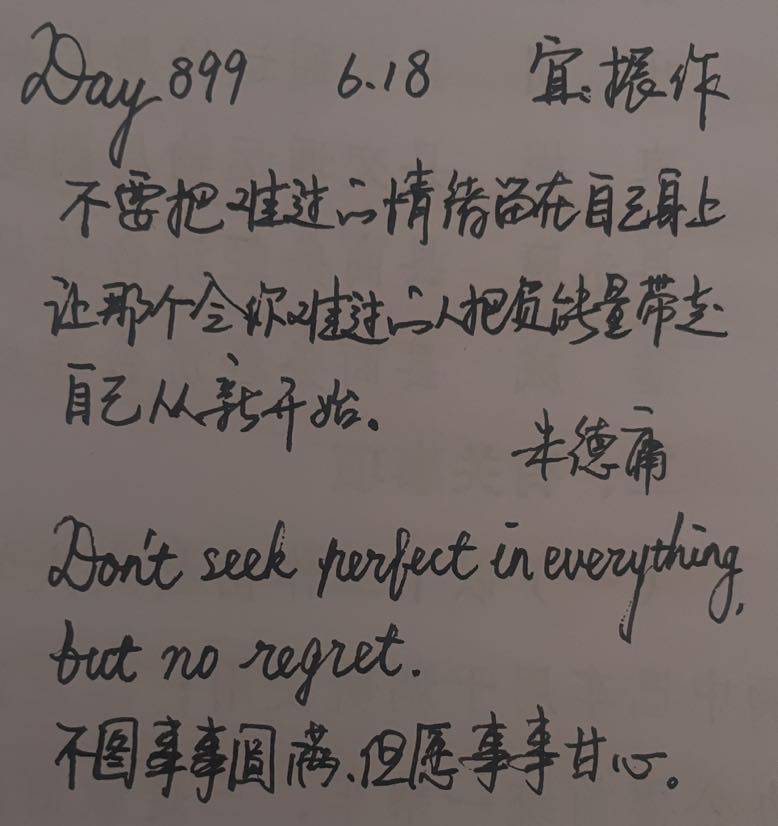 Day 899 6.18 宜:振作
不要把难过的情绪留在自己身上
让那个令你难过的人把负能量带走
自己从新开始。
米德痛
Don't seek perfect in everything,
but no regret.
不图事事圆满、但愿事事甘心。